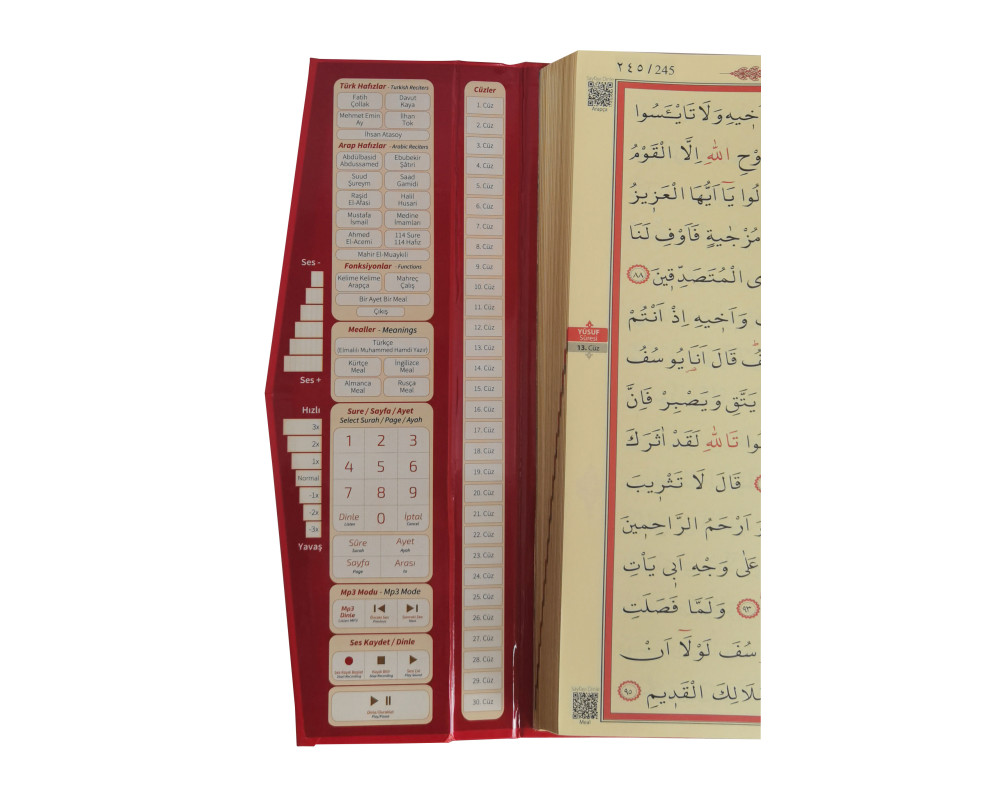 Türk Hafızlar - Turkish Reciters
Fatih
Çollak
Davut
Kaya
Mehmet Emin
Ay
İlhan
Tok
İhsan Atasoy
Arap Hafızlar - Arabic Reciters
Abdülbasid
Abdussamed
Ebubekir
Şâtri
Suud
Şureym
Saad
Gamidi
Raşid
El-Afasi
Halil
Husari
Mustafa
İsmail
Medine
İmamları
Ahmed
El-Acemi
114 Sure
114 Hafız
Mahir El-Muaykili
Fonksiyonlar - Functions
Kelime Kelime
Arapça
Mahreç
Çalış
Bir Ayet Bir Meal
Çıkış
Mealler - Meanings
Türkçe
(Elmalılı Muhammed Hamdi Yazır)
Kürtçe
Meal
İngilizce
Meal
Almanca
Meal
Rusça
Meal
Sure / Sayfa / Ayet
Select Surah / Page / Ayah
1 2 3
4 5 6
7 8 9
Dinle
Listen
0
İptal
Cancel
Sûre
Surah
Ayet
Ayah
Sayfa
Page
Arası
Mp3 Modu - Mp3 Mode
Mp3
Dinle
Listen MP3
Ses Kaydet / Dinle
Play/Pause
Ses -
Ses +
Hızlı
3x
2x
1x
Normal
-1x
-2x
-3x
Yavaş
Cüzler
1. Cüz
2. Cüz
3. Cüz
4. Cüz
5. Cüz
6. Cüz
7. Cüz
8. Cüz
9. Cüz
10. Cüz
11. Cüz
12. Cüz
13. Cüz
14. Cüz
15. Cüz
16. Cüz
17. Cüz
18. Cüz
19. Cüz
20. Cüz
21. Cüz
22. Cüz
23. Cüz
24. Cüz
25. Cüz
26. Cüz
27. Cüz
28. Cüz
29. Cüz
30. Cüz
٢٤٥ / 245
Arapça
YÛSUF
Sûresi
13. Cüz
Meal
اَخ۪يهِ وَلَا تَايْـَٔسُوا
اللّٰهِ اِلَّا الْقَوْمُ
يَٓا اَيُّهَا الْعَز۪يزُ
مُزْجٰيةٍ فَاَوْفِ لَنَا
الْمُتَصَدِّق۪ينَ ٨٨
وَاَخ۪يهِ اِذْ اَنْتُمْ
قَالَ اَنَا۬ يُوسُفُ
يَتَّقِ وَيَصْبِرْ فَاِنَّ
تَاللّٰهِ لَقَدْ اٰثَرَكَ
قَالَ لَا تَثْر۪يبَ
اَرْحَمُ الرَّاحِم۪ينَ
عَلٰى وَجْهِ اَب۪ي يَاْتِ
٩٣ وَلَمَّا فَصَلَتِ
لَوْلَٓا اَنْ
الْقَد۪يمِ ٩٥